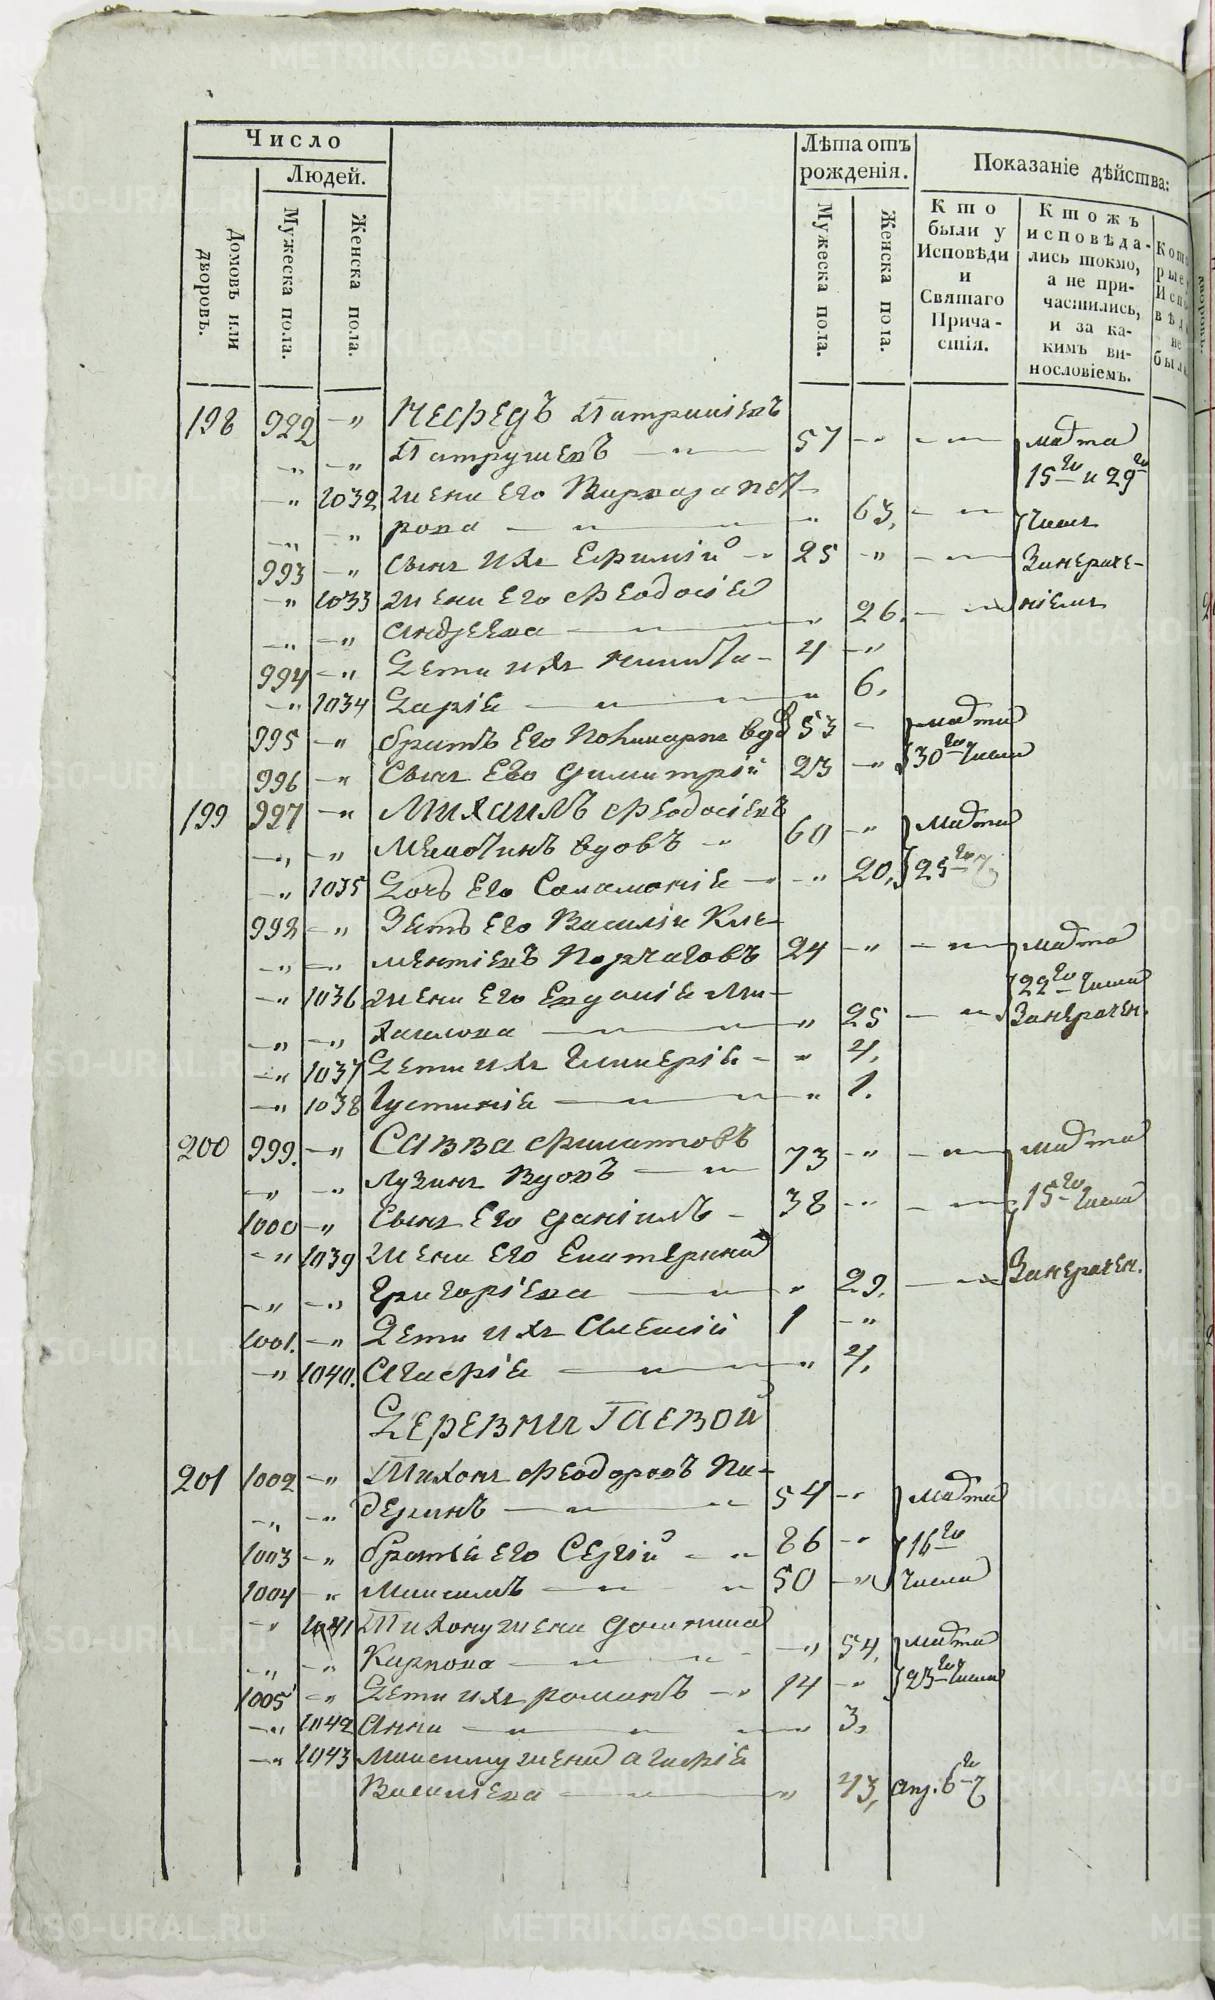 METRIKI.GASO-URAL.RU
Число
Людей.
Домовъ или дворовъ.
Мужеска пола.
Женска пола.
Лѣта отъ рожденія.
Мужеска пола.
Женска пола.
Показаніе дѣйства:
Кто были у Исповѣди и Святаго Прича-стія.
Ктожъ исповѣда-лись токмо, а не при-частились, и за ка-кимъ ви-нословіемъ.
198 992 —„ Патрикіевъ
—„ —„ Патрушевъ 57 —„ марта
—„ 1032 жена Его Варвара Пет- 15го и 29го
—„ —„ рова „ 63, числъ
993 —„ Сынъ Ихъ Ефимій 25 —„ Занераче-
—„ 1033 жена Его Феодосія
—„ —„ Андреева „ 26. ніемъ
994 —„ Дети ихъ Никита 4 —„
—„ 1034 Дарія „ 6.
995 —„ братъ Его вдо 53 — марта
996 —„ Сынъ Его Димитрій 23 —„ 30го числа
199 997 —„ Михаилъ Феодосіевъ
—„ —„ вдовъ „ 60 —„ Марта
—„ 1035 Дочь Его Саламонія —„ 20, 25го
998 —„ Зять Его Василій Кле-
—„ —„ ментіевъ 24 —„ марта
—„ 1036 жена Его Евдокія Ми- 22го числа
—„ —„ хаилова „ 25 Занерачен.
—„ 1037 Дети ихъ Гликерія — „ 4,
—„ 1038 Іустинія „ 1.
200 999. —„ Савва Филатовъ
—„ —„ Лузинъ Вдовъ 73 —„ марта
1000 —„ Сынъ Его Даніилъ — 38 —„ 15го числа
—„ 1039 жена Его Екатерина
—„ —„ Григоріева „ 29. Занерачен.
1001. —„ Дети ихъ Алексій 1 —„
—„ 1040. Агафія „ 4.
Деревни Гаевой
201 1002 —„ Тихонъ Феодоровъ Па-
—„ —„ деринъ 54 —„ марта
1003 —„ братья Его Сергій 86 —„ 16го
1004 —„ Максимъ 50 —„ числа
—„ 1041 Тихону жена Домника
—„ —„ Карпова —„ 54, марта
1005 —„ Дети ихъ романъ 14 —„ 23го числа
—„ 1042 Анна „ 3,
—„ 1043 Максиму жена агафія
Васильева „ 43, апр. 6го